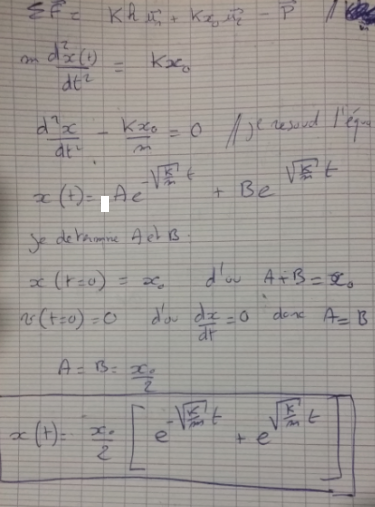 ΣF⃗ = Kh u⃗₁ + Kx₀ u⃗₂ - P⃗ //
m d²x(t)/dt² = Kx₀
d²x/dt² - Kx₀/m = 0 // je resoud l'équ
x(t) = Ae^(-√(K/m) t) + Be^(√(K/m) t)
je determine A et B
x(t=0) = x₀ d'où A+B = x₀
v(t=0) = 0 d'où dx/dt = 0 donc A = B
A = B = x₀/2
x(t) = x₀/2 [e^(-√(K/m) t) + e^(√(K/m) t)]